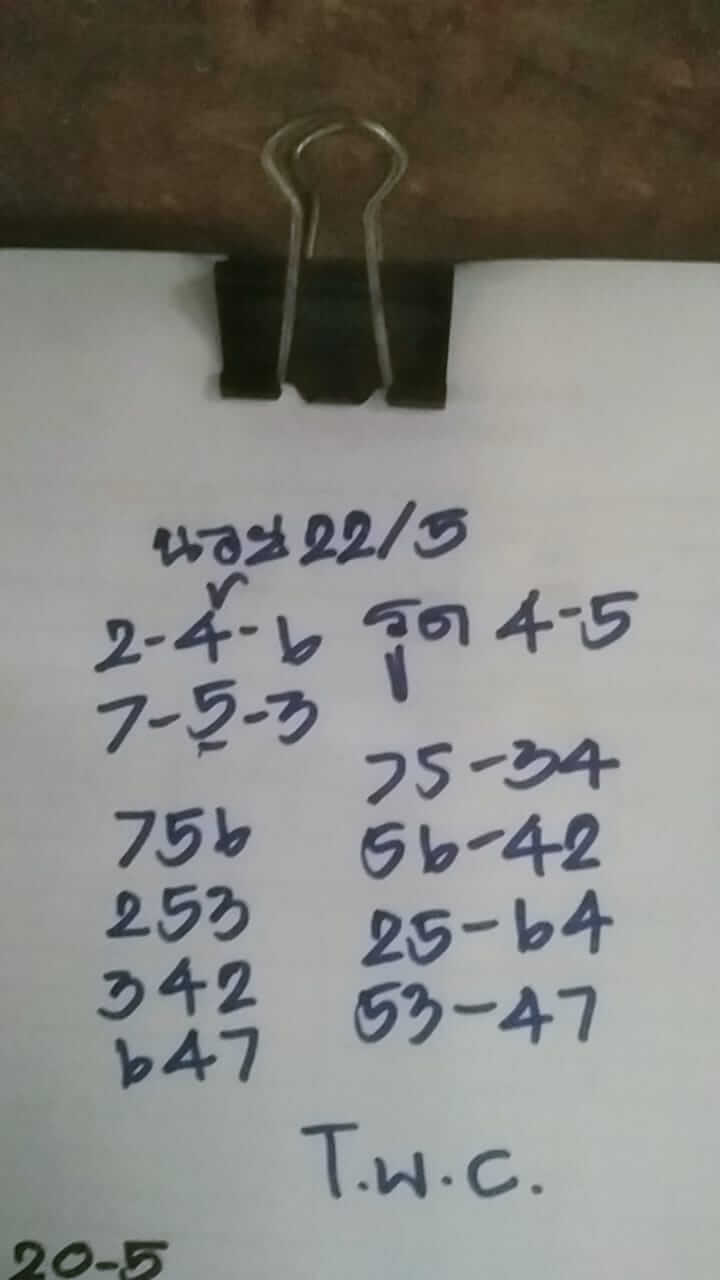 นอย 22/5
2-4-6 รูด 4-5
7-5-3
75-34
756 56-42
253 25-64
342 53-47
647
T.W.C.
20-5